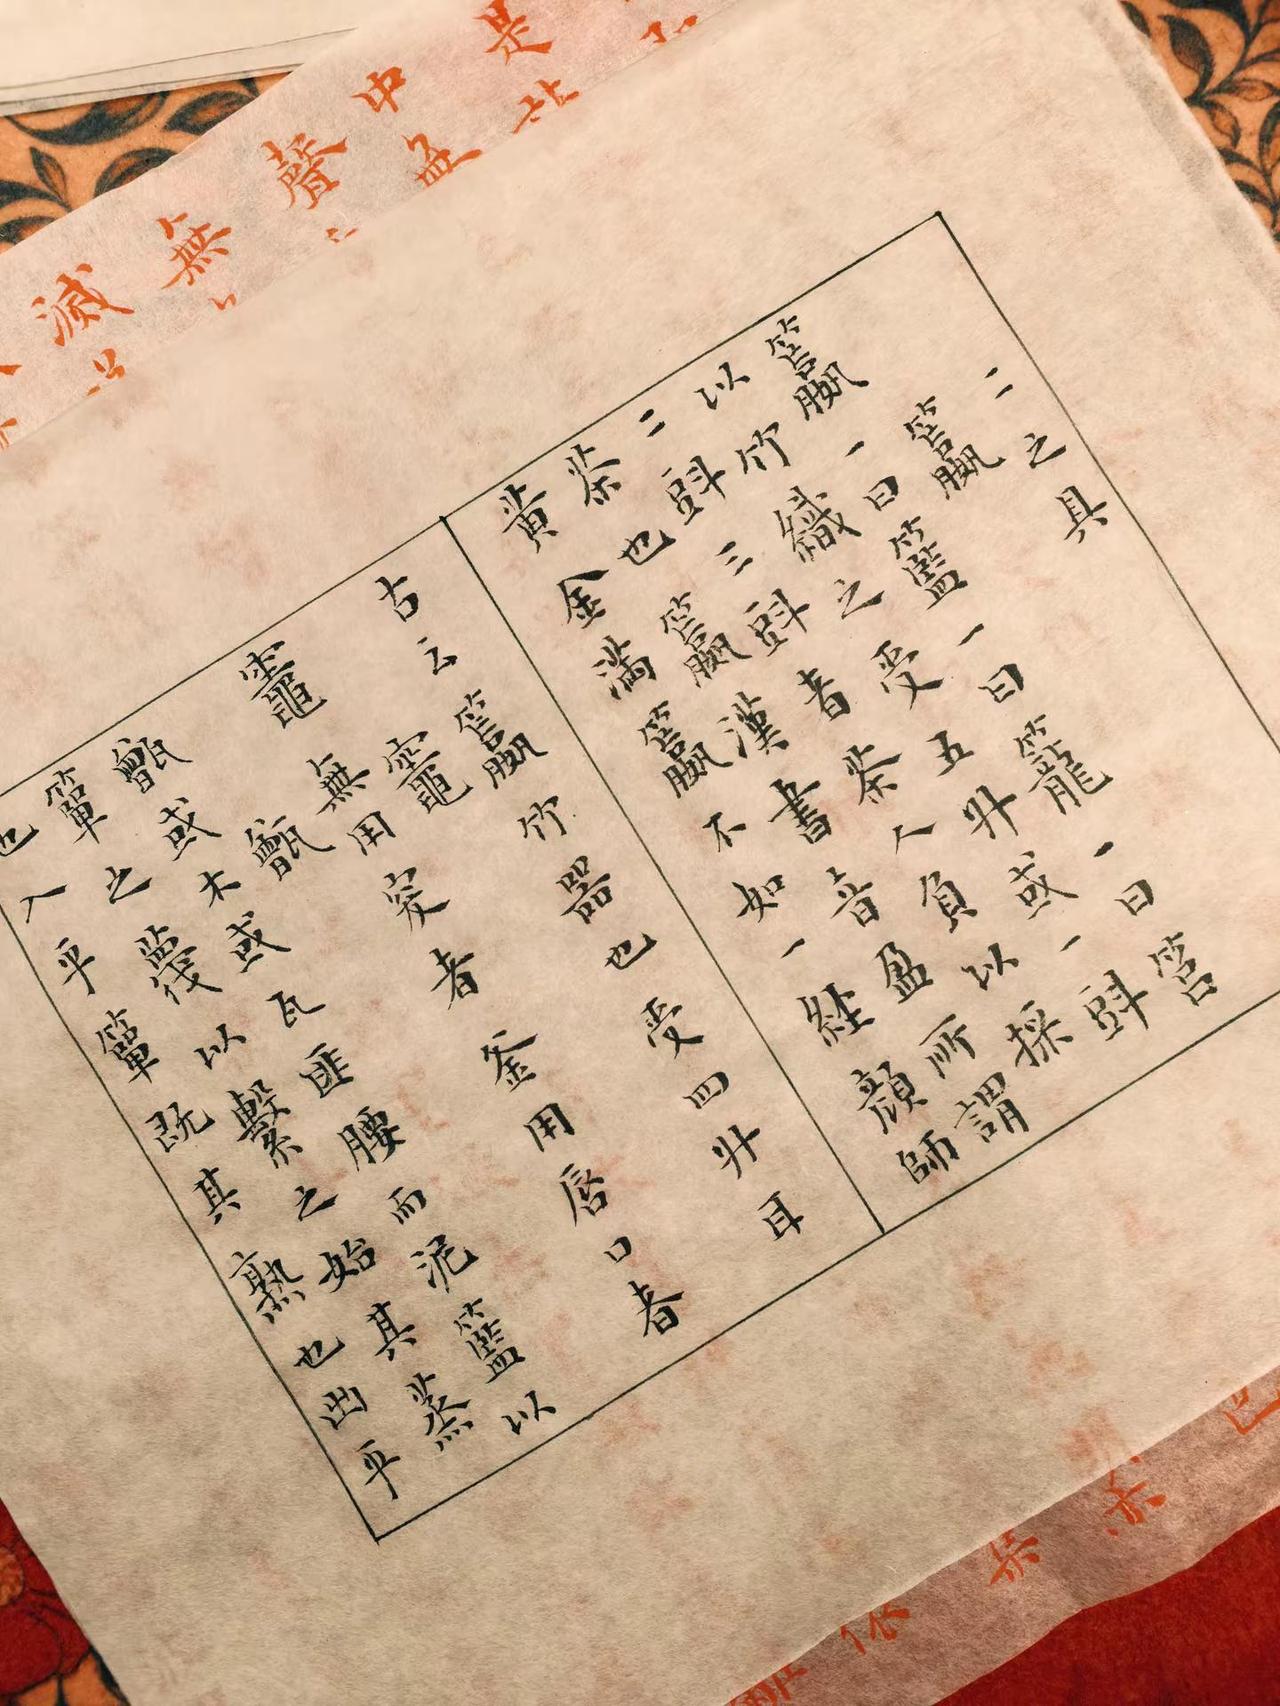 二之具
籯
籯一曰籃一曰籠一曰筥
以竹織之受五升或一㪷
二㪷三㪷者茶人負以採
茶也籯漢書音盈所謂
黃金滿籯不如一經顏師
古云籯竹器也受四升耳
竈
竈無用突者釜用唇口者
甑
甑或木或瓦匪腰而泥籃以
箄之篾以繫之始其蒸
也入乎箄既其熟也出乎
是
中
聲
無
滅